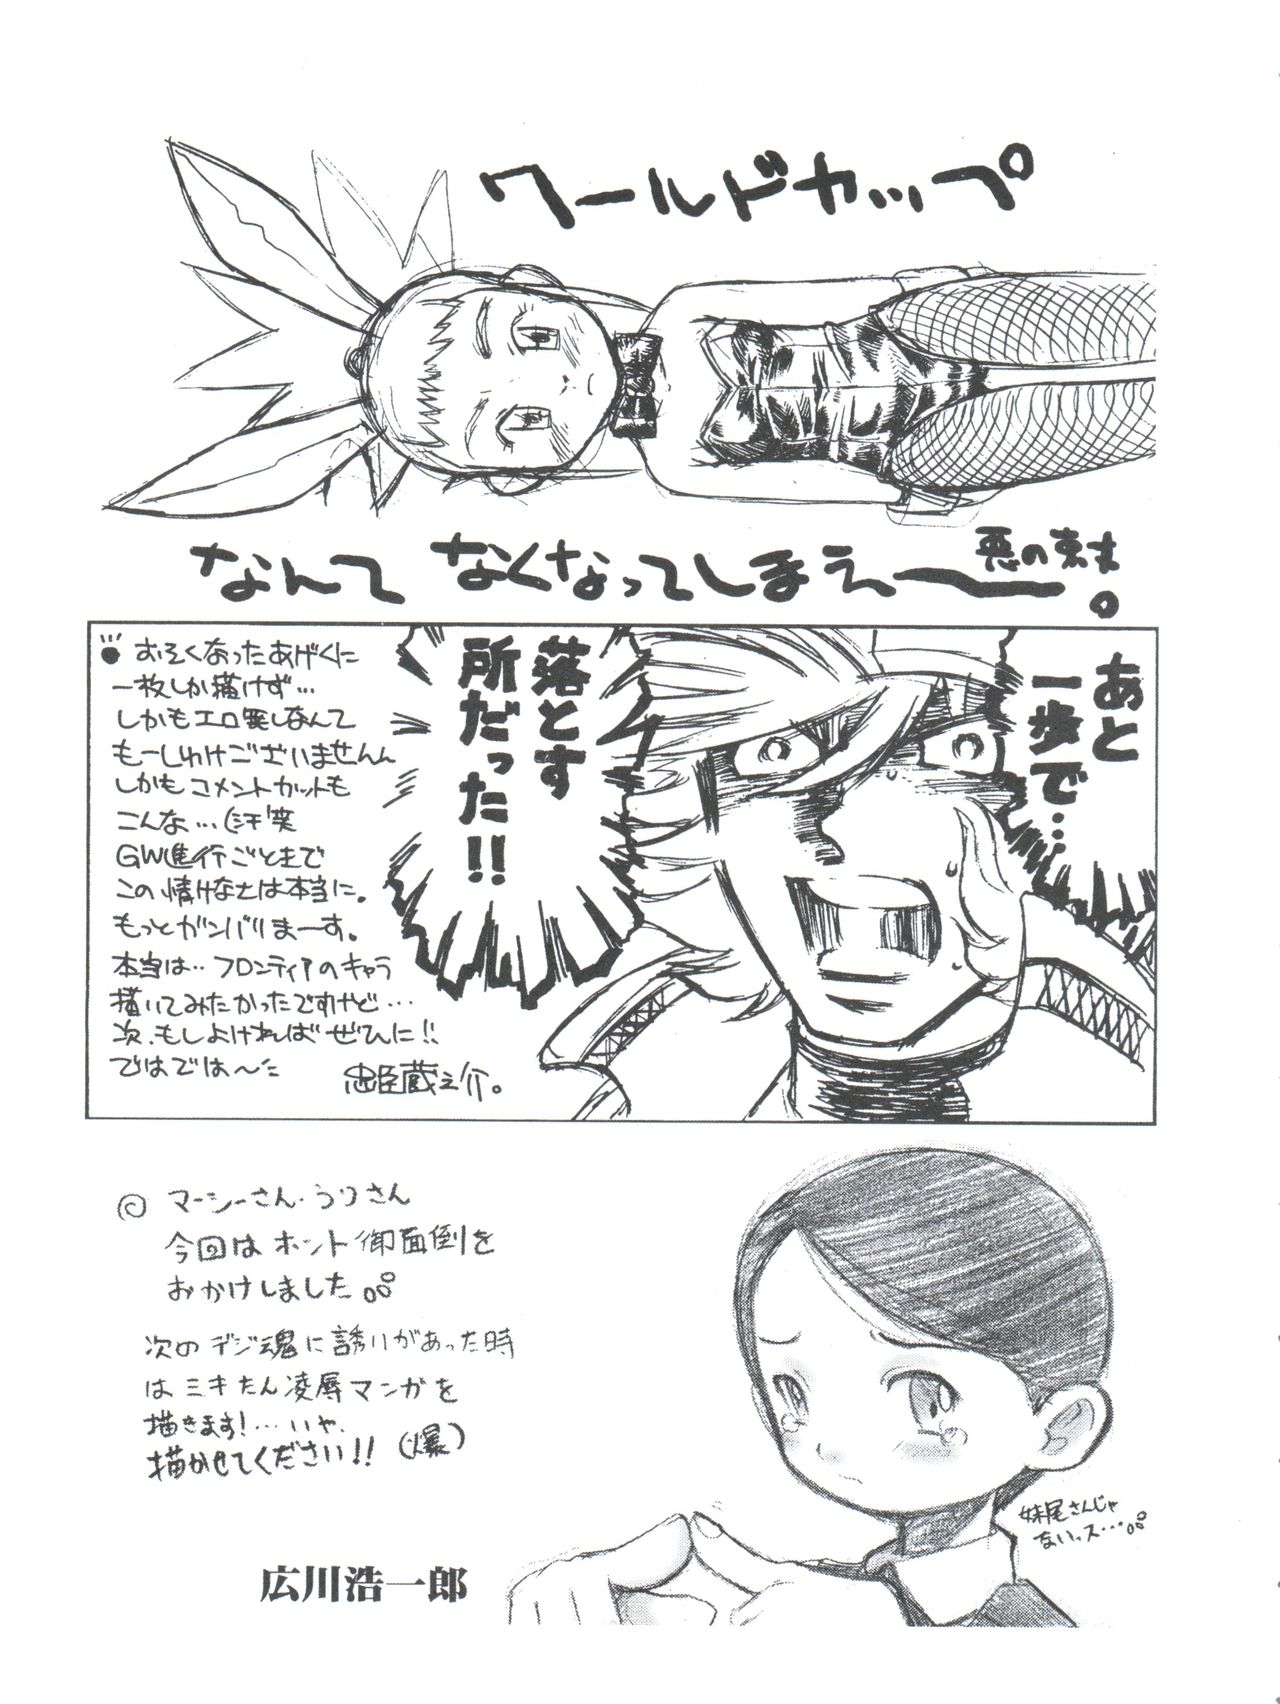 ワールドカップ
なんて なくなってしまえー。
悪の
あと
一歩で…
落とす
所だった!!
おそくなったあげくに
一枚しか描けず…
しかもエロ無しなんて
もーしわけございませんん
しかもコメントカットも
こんな…(汗笑
GW進行ごときで
この情けなさは本当に。
もっとガンバリまーす。
本当は…フロンティアのキャラ
描いてみたかったですけど…
次、もしよければぜひに!!
ではでは〜た
忠臣蔵之介。
マーシーさん・うりさん
今回はホント御面倒を
おかけしました。
次のデジ魂に誘いがあった時
はミキたん凌辱マンガを
描きます!…いや、
描かせてください!! (爆)
妹尾さんじゃ
ないっス…
広川浩一郎